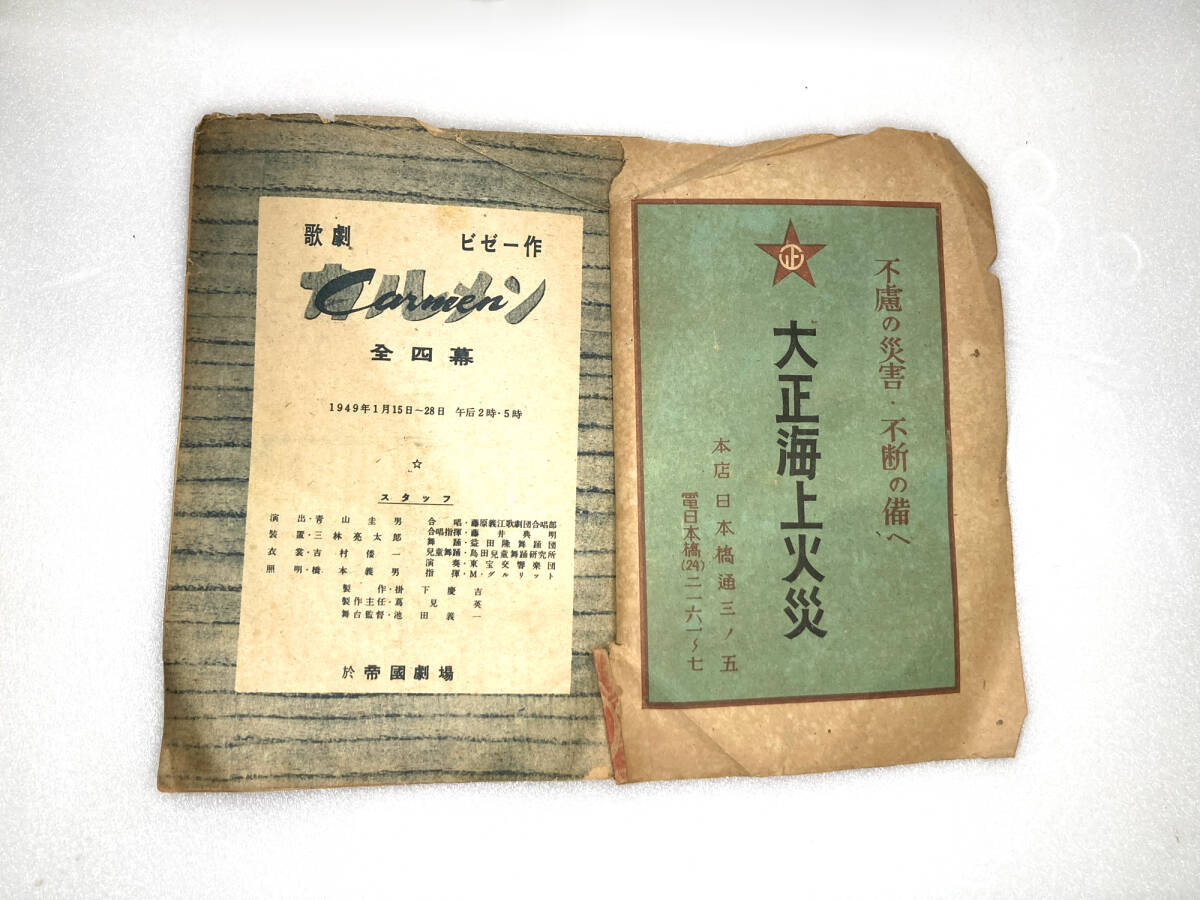 歌劇 ビゼー作
カルメン
Carmen
全四幕
1949年1月15日～28日 午后2時・5時
☆
スタッフ
演出・青山圭男
装置・三林亮太郎
衣裳・吉村倭一
照明・橋本義男
合唱・藤原義江歌劇団合唱部
合唱指揮・藤井典明
舞踊・益田隆舞踊団
兒童舞踊・島田兒童舞踊研究所
演奏・東宝交響楽団
指揮・M・グルリット
製作・掛下慶吉
製作主任・蔦見英
舞台監督・池田義一
於 帝國劇場
正
不慮の災害・不断の備へ
大正海上火災
本店日本橋通三ノ五
電日本橋(24)二一六一～七